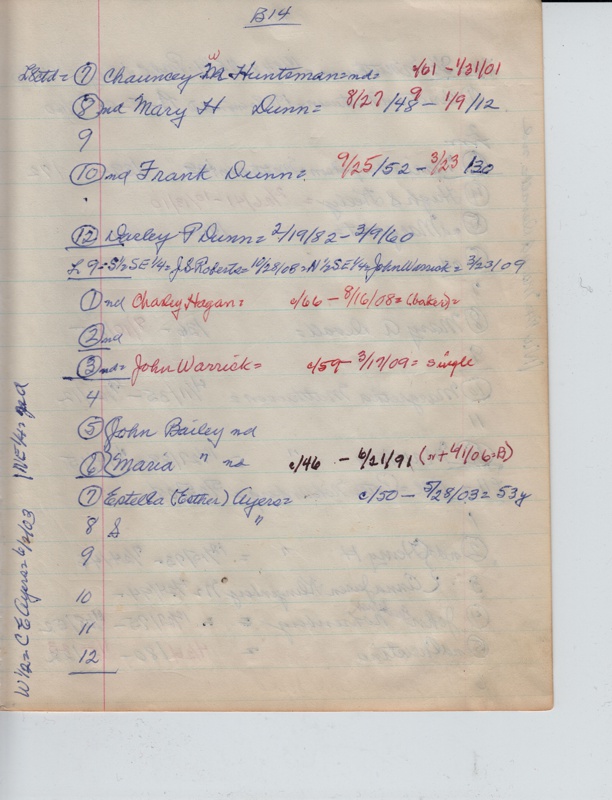 B14
L8ctd = 7 Chauncey W Huntsman = nd = c/61 - 1/31/01
8 nd Mary H Dunn = 8/27/48 - 1/9/12
9
10 nd Frank Dunn = 9/25/52 - 3/23/30
12 Dudley P Dunn = 2/19/82 - 3/9/60
L 9 = S½ SE¼ = J.S. Roberts = 10/28/08 = N½ SE¼ = John Warrick = 3/23/09
1 nd Charley Hagan = c/66 - 8/16/08 = (baker) =
2 nd
3 nd = John Warrick = c/59 - 3/17/09 = single
4
5 John Bailey nd
6 Maria " nd c/46 - 6/21/91 (n + 41/06 = B)
7 Estella (Esther) Ayers = c/50 - 5/28/03 = 53y
8 S "
9
10
11
12
W½ = C E Ayers = 6/2/03 NE¼ =